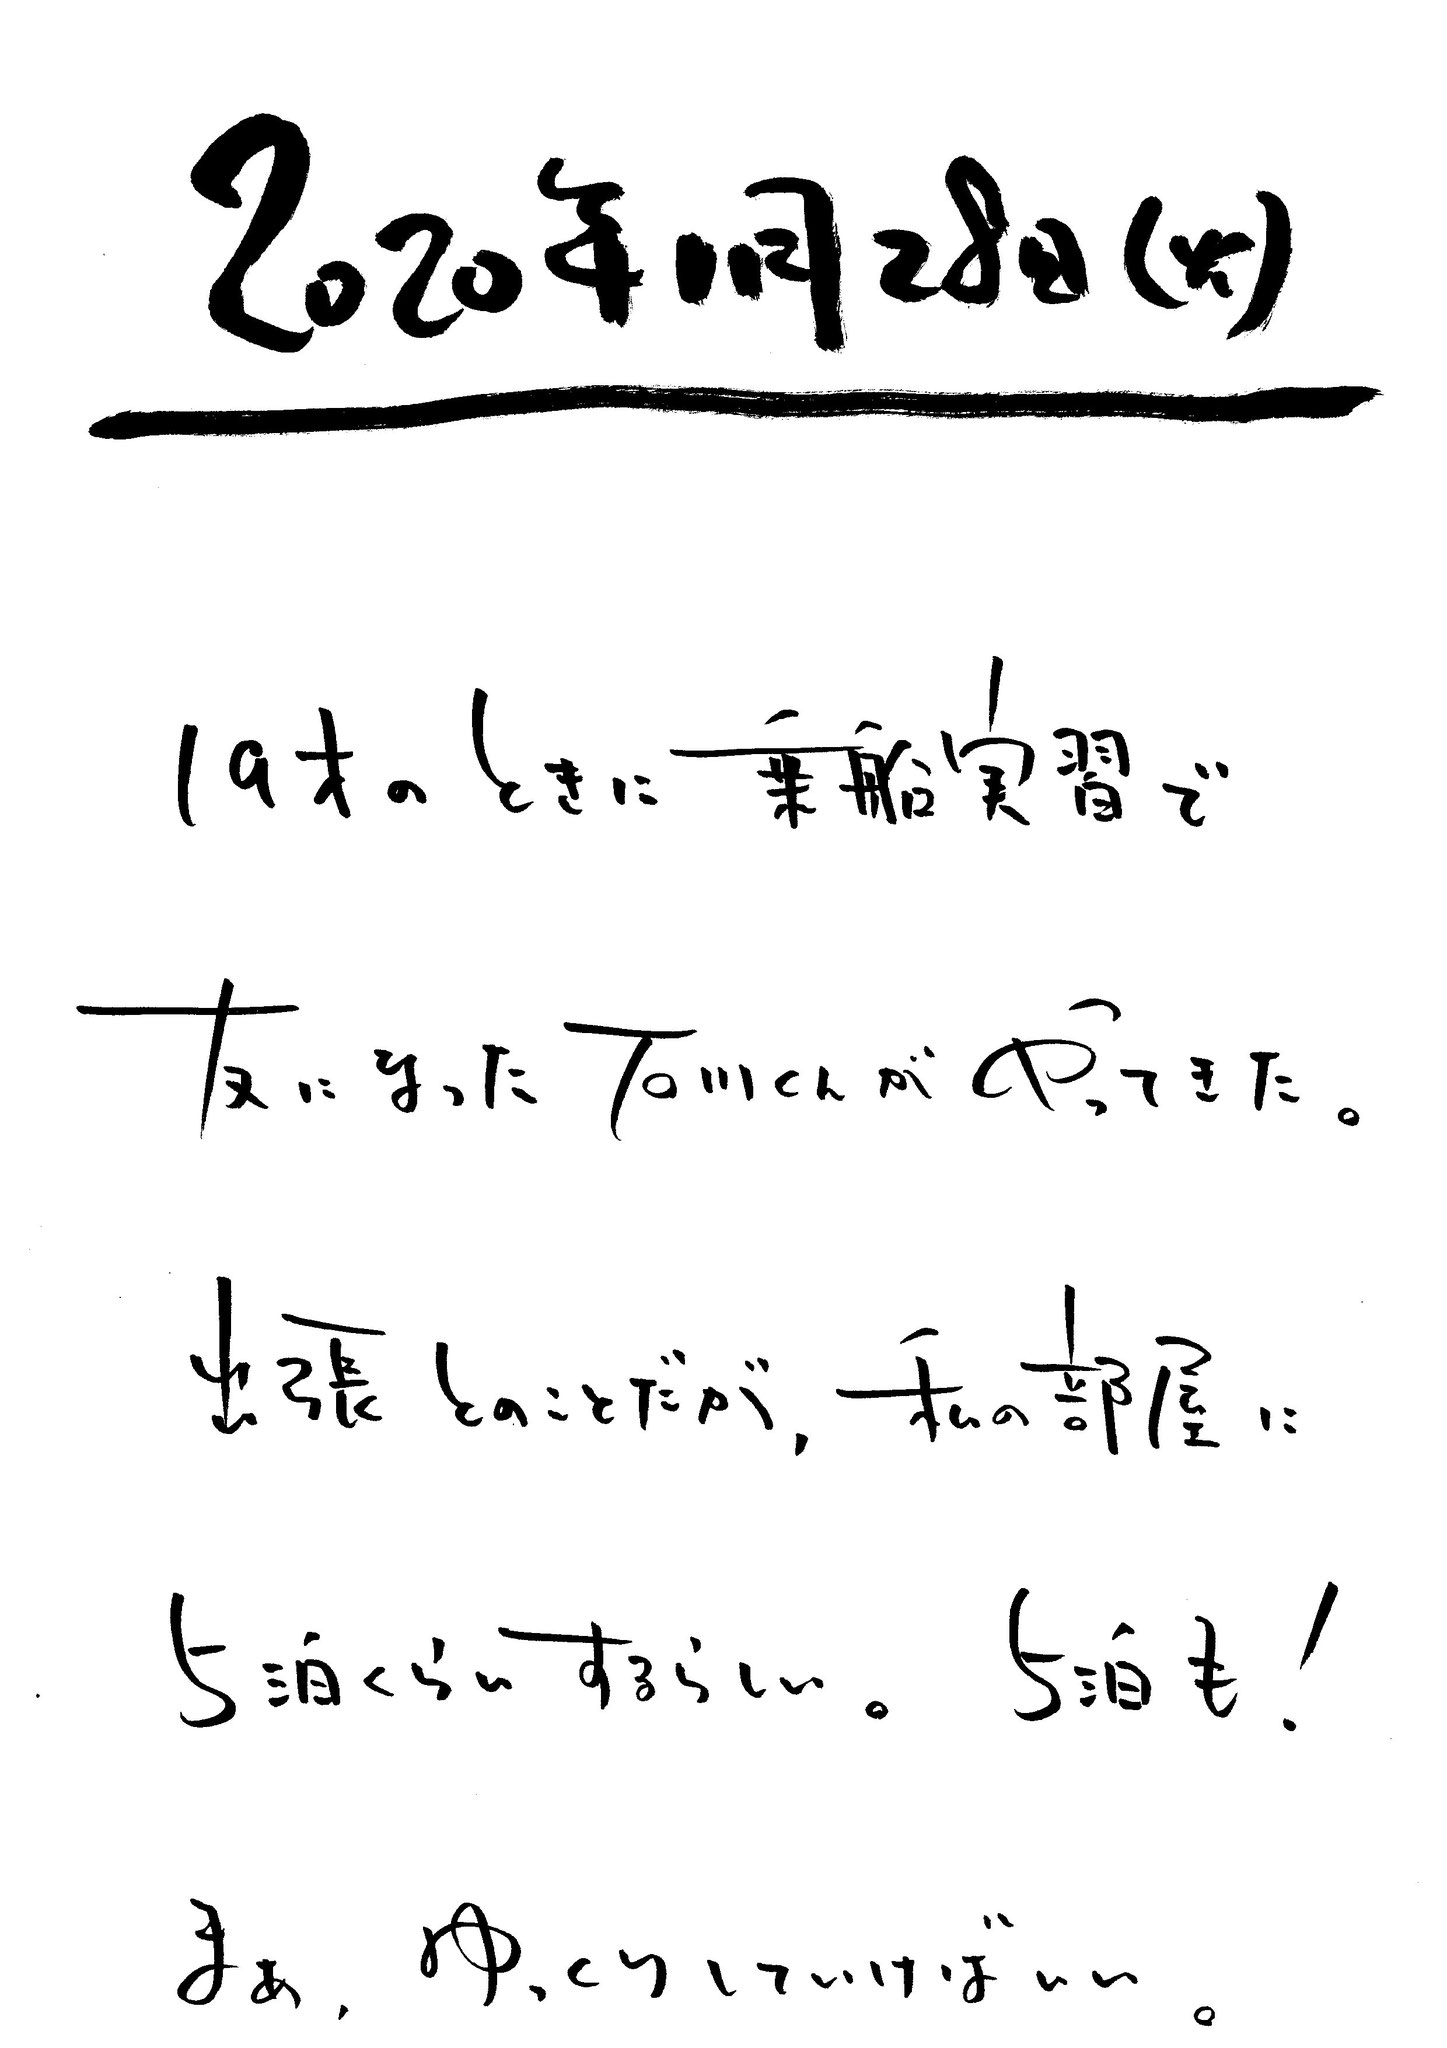 2020年1月28日(火)
19才のときに乗船実習で
友になった石川くんがやってきた。
出張とのことだが,私の部屋に
5泊くらいするらしい。5泊も!
まぁ,ゆっくりしていけばいい。